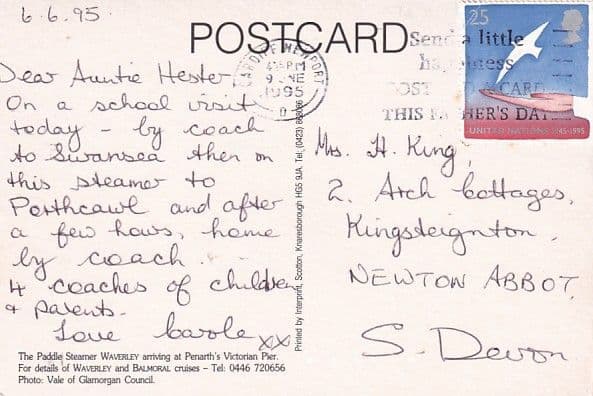 6.6.95.
POSTCARD
Dear Auntie Hester
On a school visit
today - by coach
to Swansea then on
this steamer to
Porthcawl and after
a few hours, home
by coach.
4 coaches of children
+ parents.
Love Carole xx
The Paddle Steamer WAVERLEY arriving at Penarth's Victorian Pier.
For details of WAVERLEY and BALMORAL cruises - Tel: 0446 720656
Photo: Vale of Glamorgan Council.
Printed by Interprint, Scotton, Knaresborough HG5 9JA. Tel: (0423)
CARDIFF NEWPORT
PM
9 JNE
1995
Send a little
happiness
POST A CARD
THIS FATHER'S DAY
25
UNITED NATIONS 1945-1995
Mrs. H. King,
2. Arch Cottages,
Kingsteignton.
NEWTON ABBOT.
S. Devon